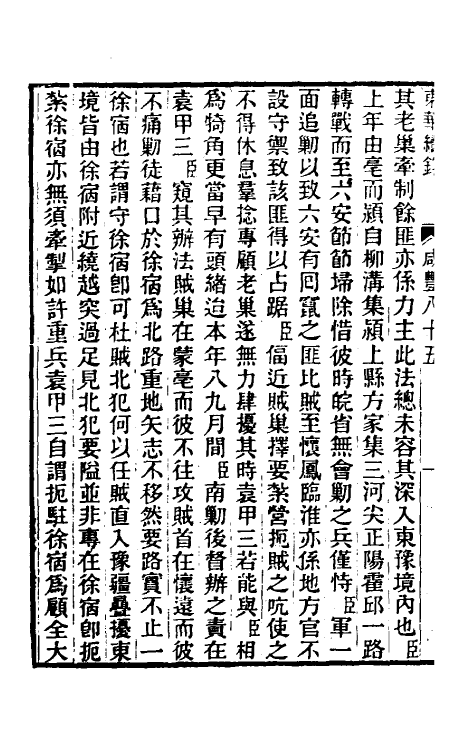 東華續錄　咸豐八十五　一
其老巢牽制餘匪亦係力主此法總未容其深入東豫境內也臣
上年由亳而潁自柳溝集潁上縣方家集三河尖正陽霍邱一路
轉戰而至六安節節埽除惜彼時皖省無會勦之兵僅恃臣軍一
面追勦以致六安有回竄之匪比賊至懷鳳臨淮亦係地方官不
設守禦致該匪得以占踞臣偪近賊巢擇要紮營扼賊之吭使之
不得休息羣捻專顧老巢遂無力肆擾其時袁甲三若能與臣相
爲犄角更當早有頭緒迨本年八九月間臣南勦後督辦之責在
袁甲三臣窺其辦法賊巢在蒙亳而彼不往攻賊首在懷遠而彼
不痛勦徒藉口於徐宿爲北路重地矢志不移然要路實不止一
徐宿也若謂守徐宿卽可杜賊北犯何以任賊直入豫疆疊擾東
境皆由徐宿附近繞越突過足見北犯要隘並非專在徐宿卽扼
紮徐宿亦無須牽掣如許重兵袁甲三自謂扼駐徐宿爲顧全大